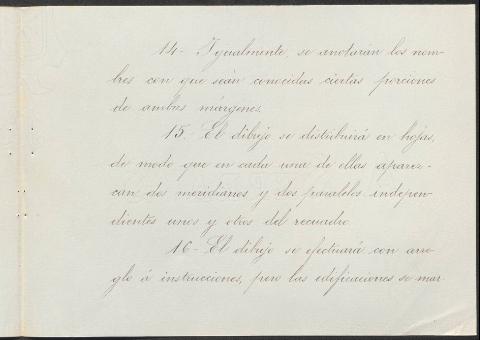 14- Igualmente, se anotarán los nom-
bres con que seán conocidas ciertas porciones
de ambas márgenes.
15. El dibujo se distribuirá en hojas,
de modo que en cada una de ellas aparez-
can dos meridianos y dos paralelos indepen-
dientes unos y otros del recuadro.
16- El dibujo se efectuará con arre-
glo á instrucciones, pero las edificaciones se mar-